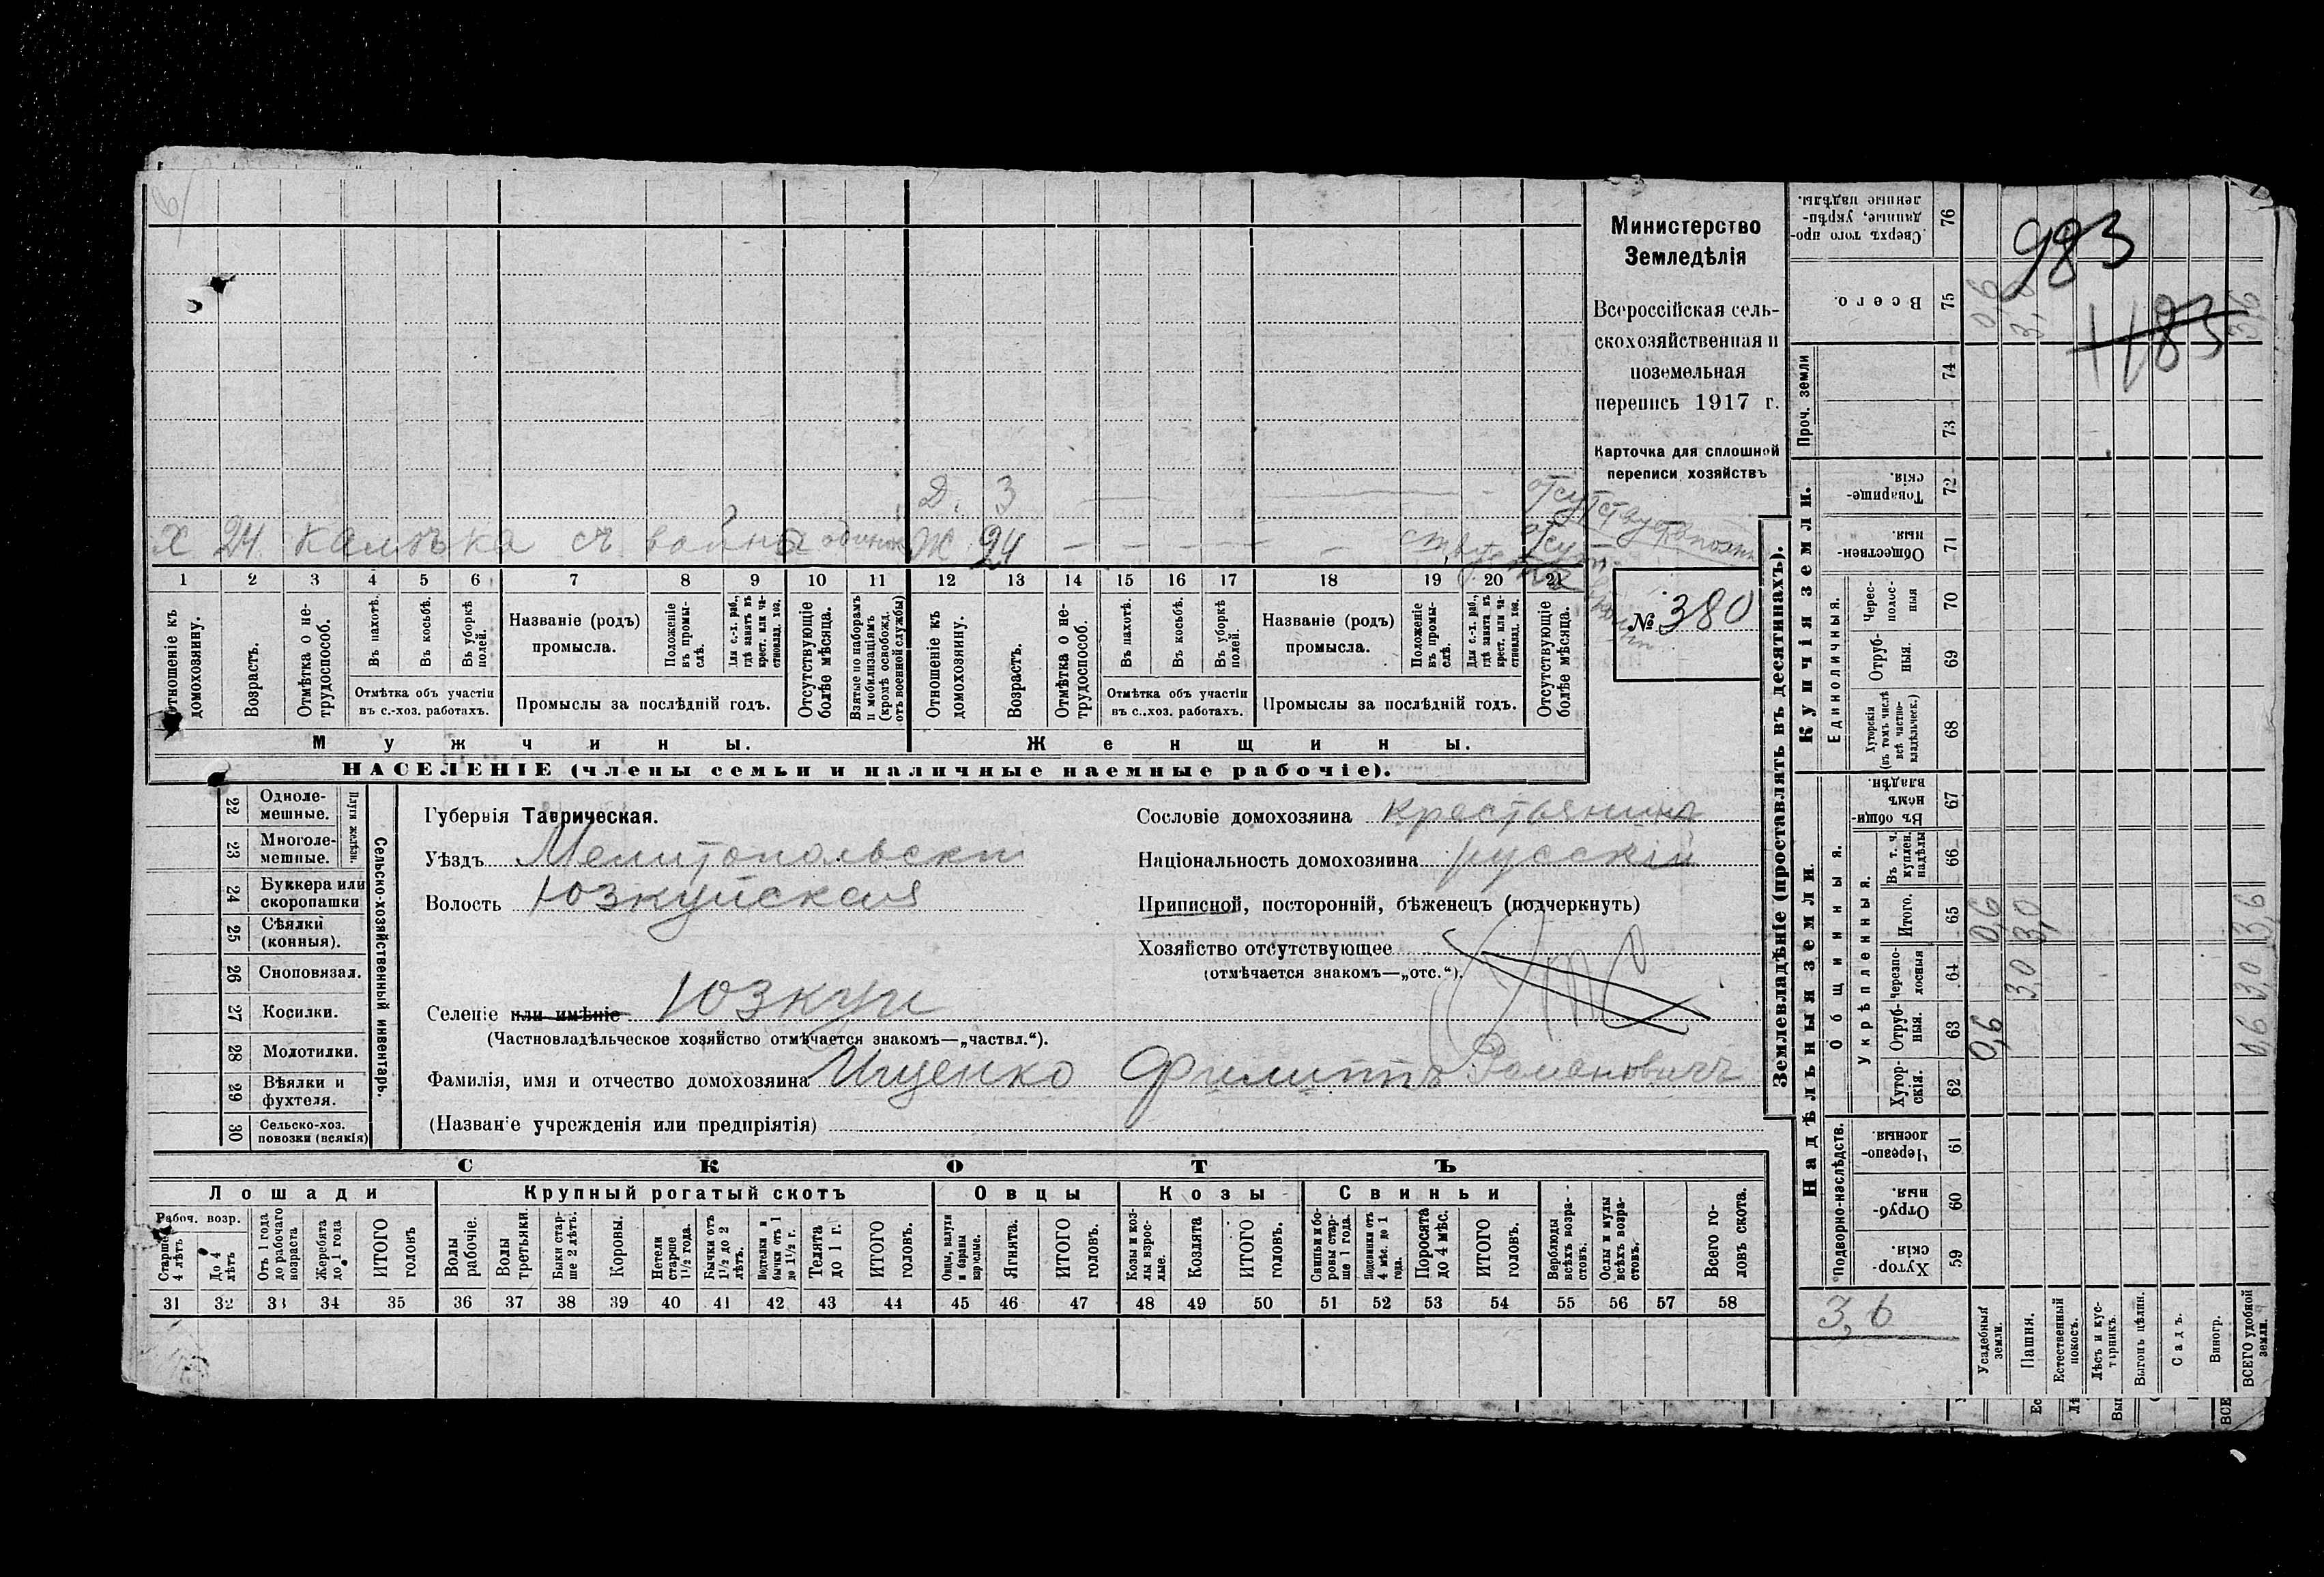 Министерство
Земледѣлія
Всероссійская сель-
скохозяйственная и
поземельная
перепись 1917 г.
Карточка для сплошной
переписи хозяйствъ
№ 380
Д. 3
отсутствуетъ
Х 24 калѣка съ войны Ж 24
1 2 3 4 5 6 7 8 9 10 11 12 13 14 15 16 17 18 19 20 21
Отношеніе къ домохозяину.
Возрастъ.
Отмѣтка о не-трудоспособ.
Въ пахотѣ.
Въ косьбѣ.
Въ уборкѣ полей.
Отмѣтка объ участіи
въ с.-хоз. работахъ.
Названіе (родъ)
промысла.
Положеніе въ промы-слѣ.
Для с.-х. раб., гдѣ занятъ въ крест. или ча-стновлад. хоз.
Промыслы за послѣдній годъ.
Отсутствующіе болѣе мѣсяца.
Взятые по наборамъ и мобилизаціямъ (кромѣ освобожд. отъ военной службы)
Отношеніе къ домохозяину.
Возрастъ.
Отмѣтка о не-трудоспособ.
Въ пахотѣ.
Въ косьбѣ.
Въ уборкѣ полей.
Отмѣтка объ участіи
въ с.-хоз. работахъ.
Названіе (родъ)
промысла.
Положеніе въ промы-слѣ.
Для с.-х. раб., гдѣ занята въ крест. или ча-стновлад. хоз.
Промыслы за послѣдній годъ.
Отсутствующіе болѣе мѣсяца.
Мужчины.
Женщины.
НАСЕЛЕНІЕ (члены семьи и наличные наемные рабочіе).
Сельско-хозяйственный инвентарь.
Плуги желѣзн.
22 Одноле-мешные.
23 Многоле-мешные.
24 Буккера или скоропашки
25 Сѣялки (конныя).
26 Сноповязал.
27 Косилки.
28 Молотилки.
29 Вѣялки и фухтеля.
30 Сельско-хоз. повозки (всякія)
Губернія Таврическая.
Уѣздъ Мелитопольскій
Волость Юзкуйская
Селеніе или имѣніе Юзкуи
(Частновладѣльческое хозяйство отмѣчается знакомъ—„частвл.“).
Фамилія, имя и отчество домохозяина Ищенко Филиппъ Романовичъ
(Названіе учрежденія или предпріятія)
Сословіе домохозяина крестьянинъ
Національность домохозяина русскій
Приписной, посторонній, бѣженецъ (подчеркнуть)
Хозяйство отсутствующее
(отмѣчается знакомъ—„отс.“).
СКОТЪ
Лошади
Рабоч. возр.
Старше 4 лѣтъ
До 4 лѣтъ
Отъ 1 года до рабочаго возраста
Жеребята до 1 года
ИТОГО головъ
Крупный рогатый скотъ
Волы рабочіе.
Волы третьяки.
Быки стар-ше 2 лѣтъ.
Коровы.
Нетели старше 1½ года.
Бычки отъ 1½ до 2 лѣтъ.
Подтелки и бычки отъ 1 до 1½ г.
Телята до 1 г.
ИТОГО головъ.
Овцы
Овцы, валухи и бараны взрослые.
Ягнята.
ИТОГО головъ.
Козы
Козы и коз-лы взрос-лые.
Козлята
ИТОГО головъ.
Свиньи
Свиньи и бо-ровы стар-ше 1 года.
Подсвинки отъ 4 мѣс. до 1 года.
Поросята до 4 мѣс.
ИТОГО головъ.
Верблюды всѣхъ возра-стовъ.
Ослы и мулы всѣхъ возра-стовъ.
Всего го-ловъ скота.
31 32 33 34 35 36 37 38 39 40 41 42 43 44 45 46 47 48 49 50 51 52 53 54 55 56 57 58
Землевладѣніе (проставлять въ десятинахъ).
Надѣльныя земли.
Купчія земли.
Проч. земли
Подворно-наслѣдств.
Общинныя.
Укрѣпленныя.
Единоличныя.
Хутор-скія. 59
Отруб-ныя. 60
Черезпо-лосныя. 61
Хутор-скія. 62
Отруб-ныя. 63
Черезпо-лосныя 64
Итого. 65
Въ т. ч. куплен. надѣлы 66
Въ общин-номъ владѣн. 67
Хуторскія (въ томъ числѣ всѣ частно-владѣльческ.) 68
Отруб-ныя. 69
Черес-полос-ныя 70
Обществен-ныя 71
Товарище-скія. 72
73
74
Всего. 75
Сверхъ того про-данные, укрѣп-ленные надѣлы. 76
Усадебныя земли. 0,6 0,6 0,6
Пашня. 3,0 3,0
Естественный покосъ.
Лѣсъ и кус-тарникъ.
Выгонъ цѣлин.
Садъ.
Виногр.
ВСЕГО удобной земли. 0,6 3,0 3,6 3,6
3,6
983
1183